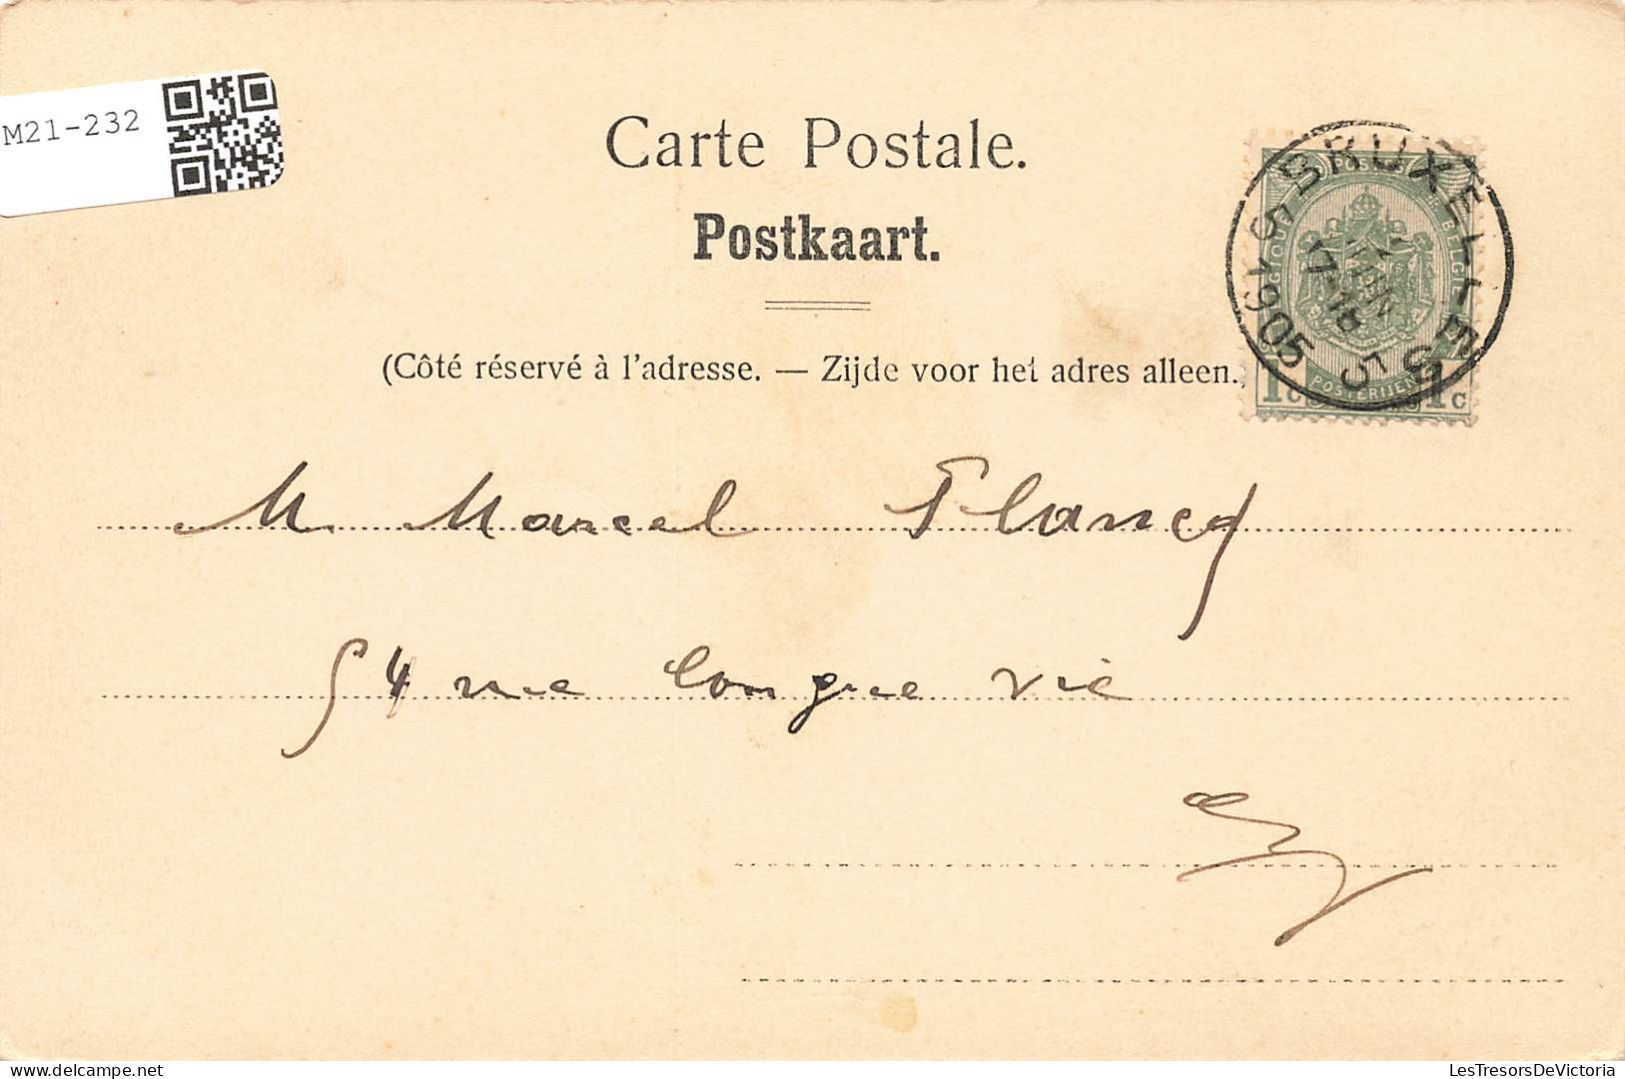 M21-232
Carte Postale.
Postkaart.
(Côté réservé à l'adresse. — Zijde voor het adres alleen.)
BRUXELLES 5
1905
17-18
POSTERIJEN
1c 1c
M. Marcel Plancq
54 rue Longue vie
delcampe.net
LesTresorsDeVictoria